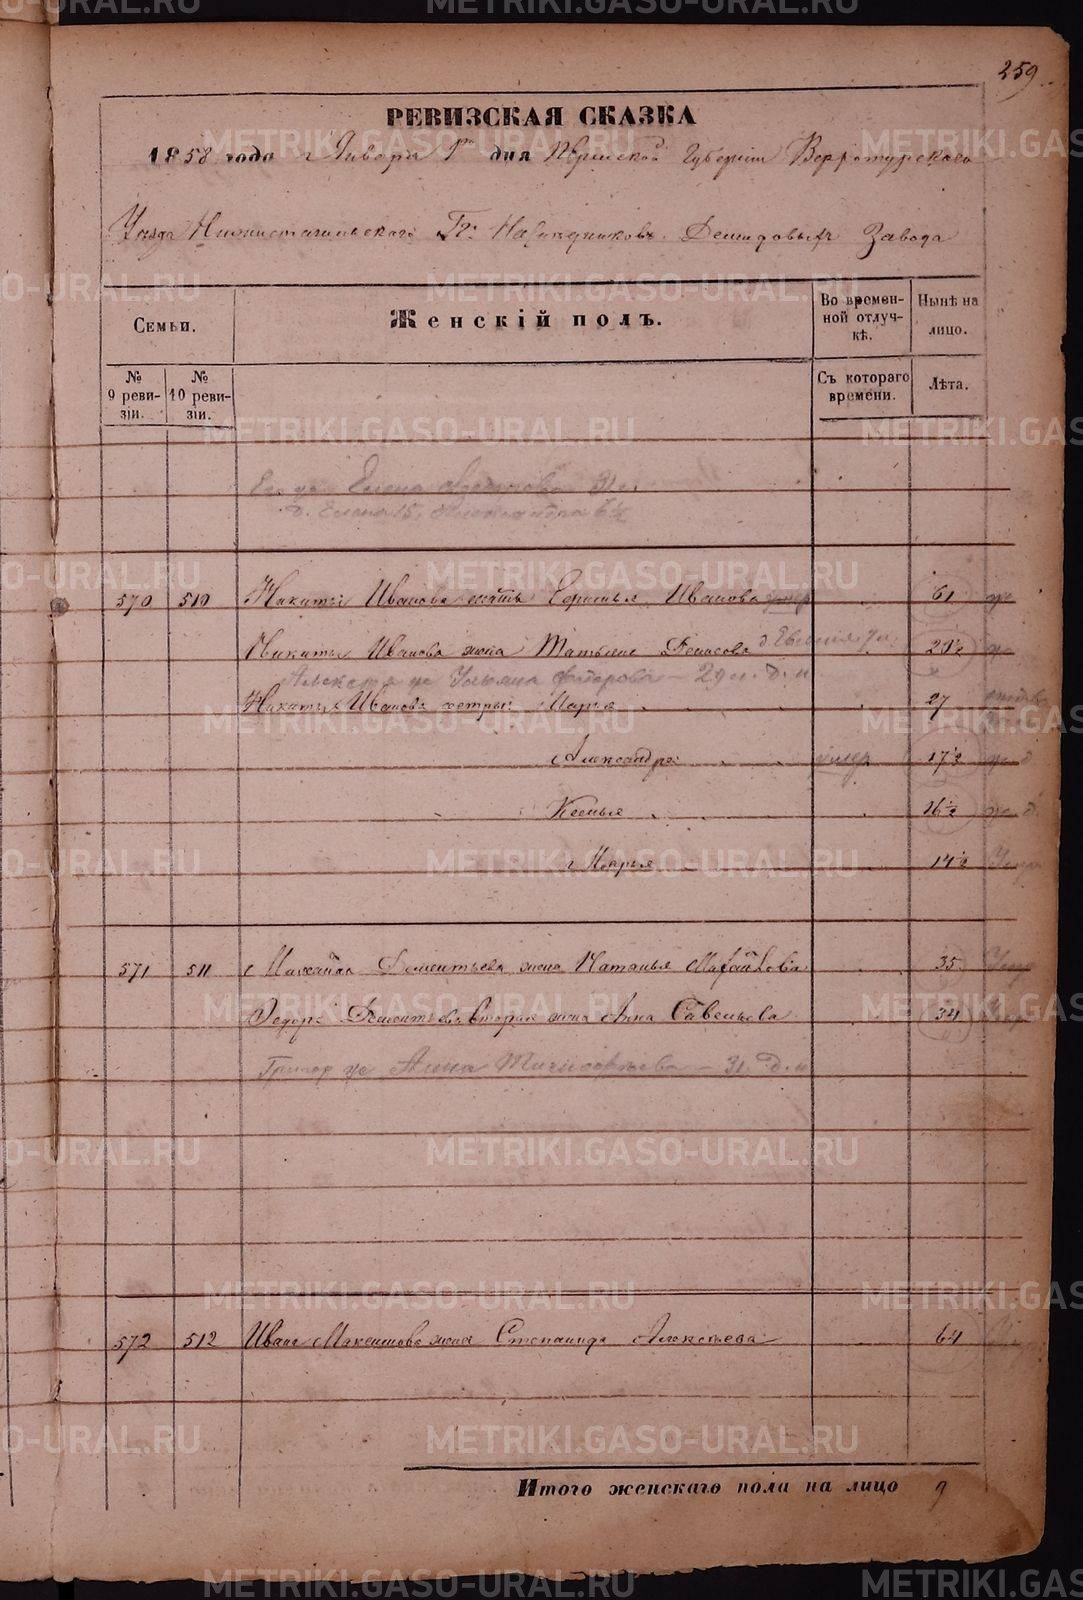 259
РЕВИЗСКАЯ СКАЗКА
1858 года Января 1го дня Пермской Губерніи Верхотурскаго
Уѣзда Нижнетагильскаго Гг. Наслѣдниковъ Демидовыхъ Завода
Семьи.
Женскій полъ.
Во времен-
ной отлуч-
кѣ.
Нынѣ на
лицо.
№
9 реви-
зіи.
№
10 реви-
зіи.
Съ котораго
времени.
Лѣта.
Елена
д. Елена 15, Александра 6½
570 510 Никиты Иванова мать Ефимья Иванова умер 61
Никиты Иванова жена Татьяна Денисова 29½
Ульяна Федорова - 29
Никиты Иванова сестры: Марья 27
Александра умер 17½
Ксенья 16½
Марья 14½
571 511 Михайла Дементьева жена Наталья 35
Федора Дементьева вторая жена Анна Савельева 34
Григор Анна - 31
572 512 Ивана Максимова жена Степанида Алексѣева 64
Итого женскаго пола на лицо 9
METRIKI.GASO-URAL.RU